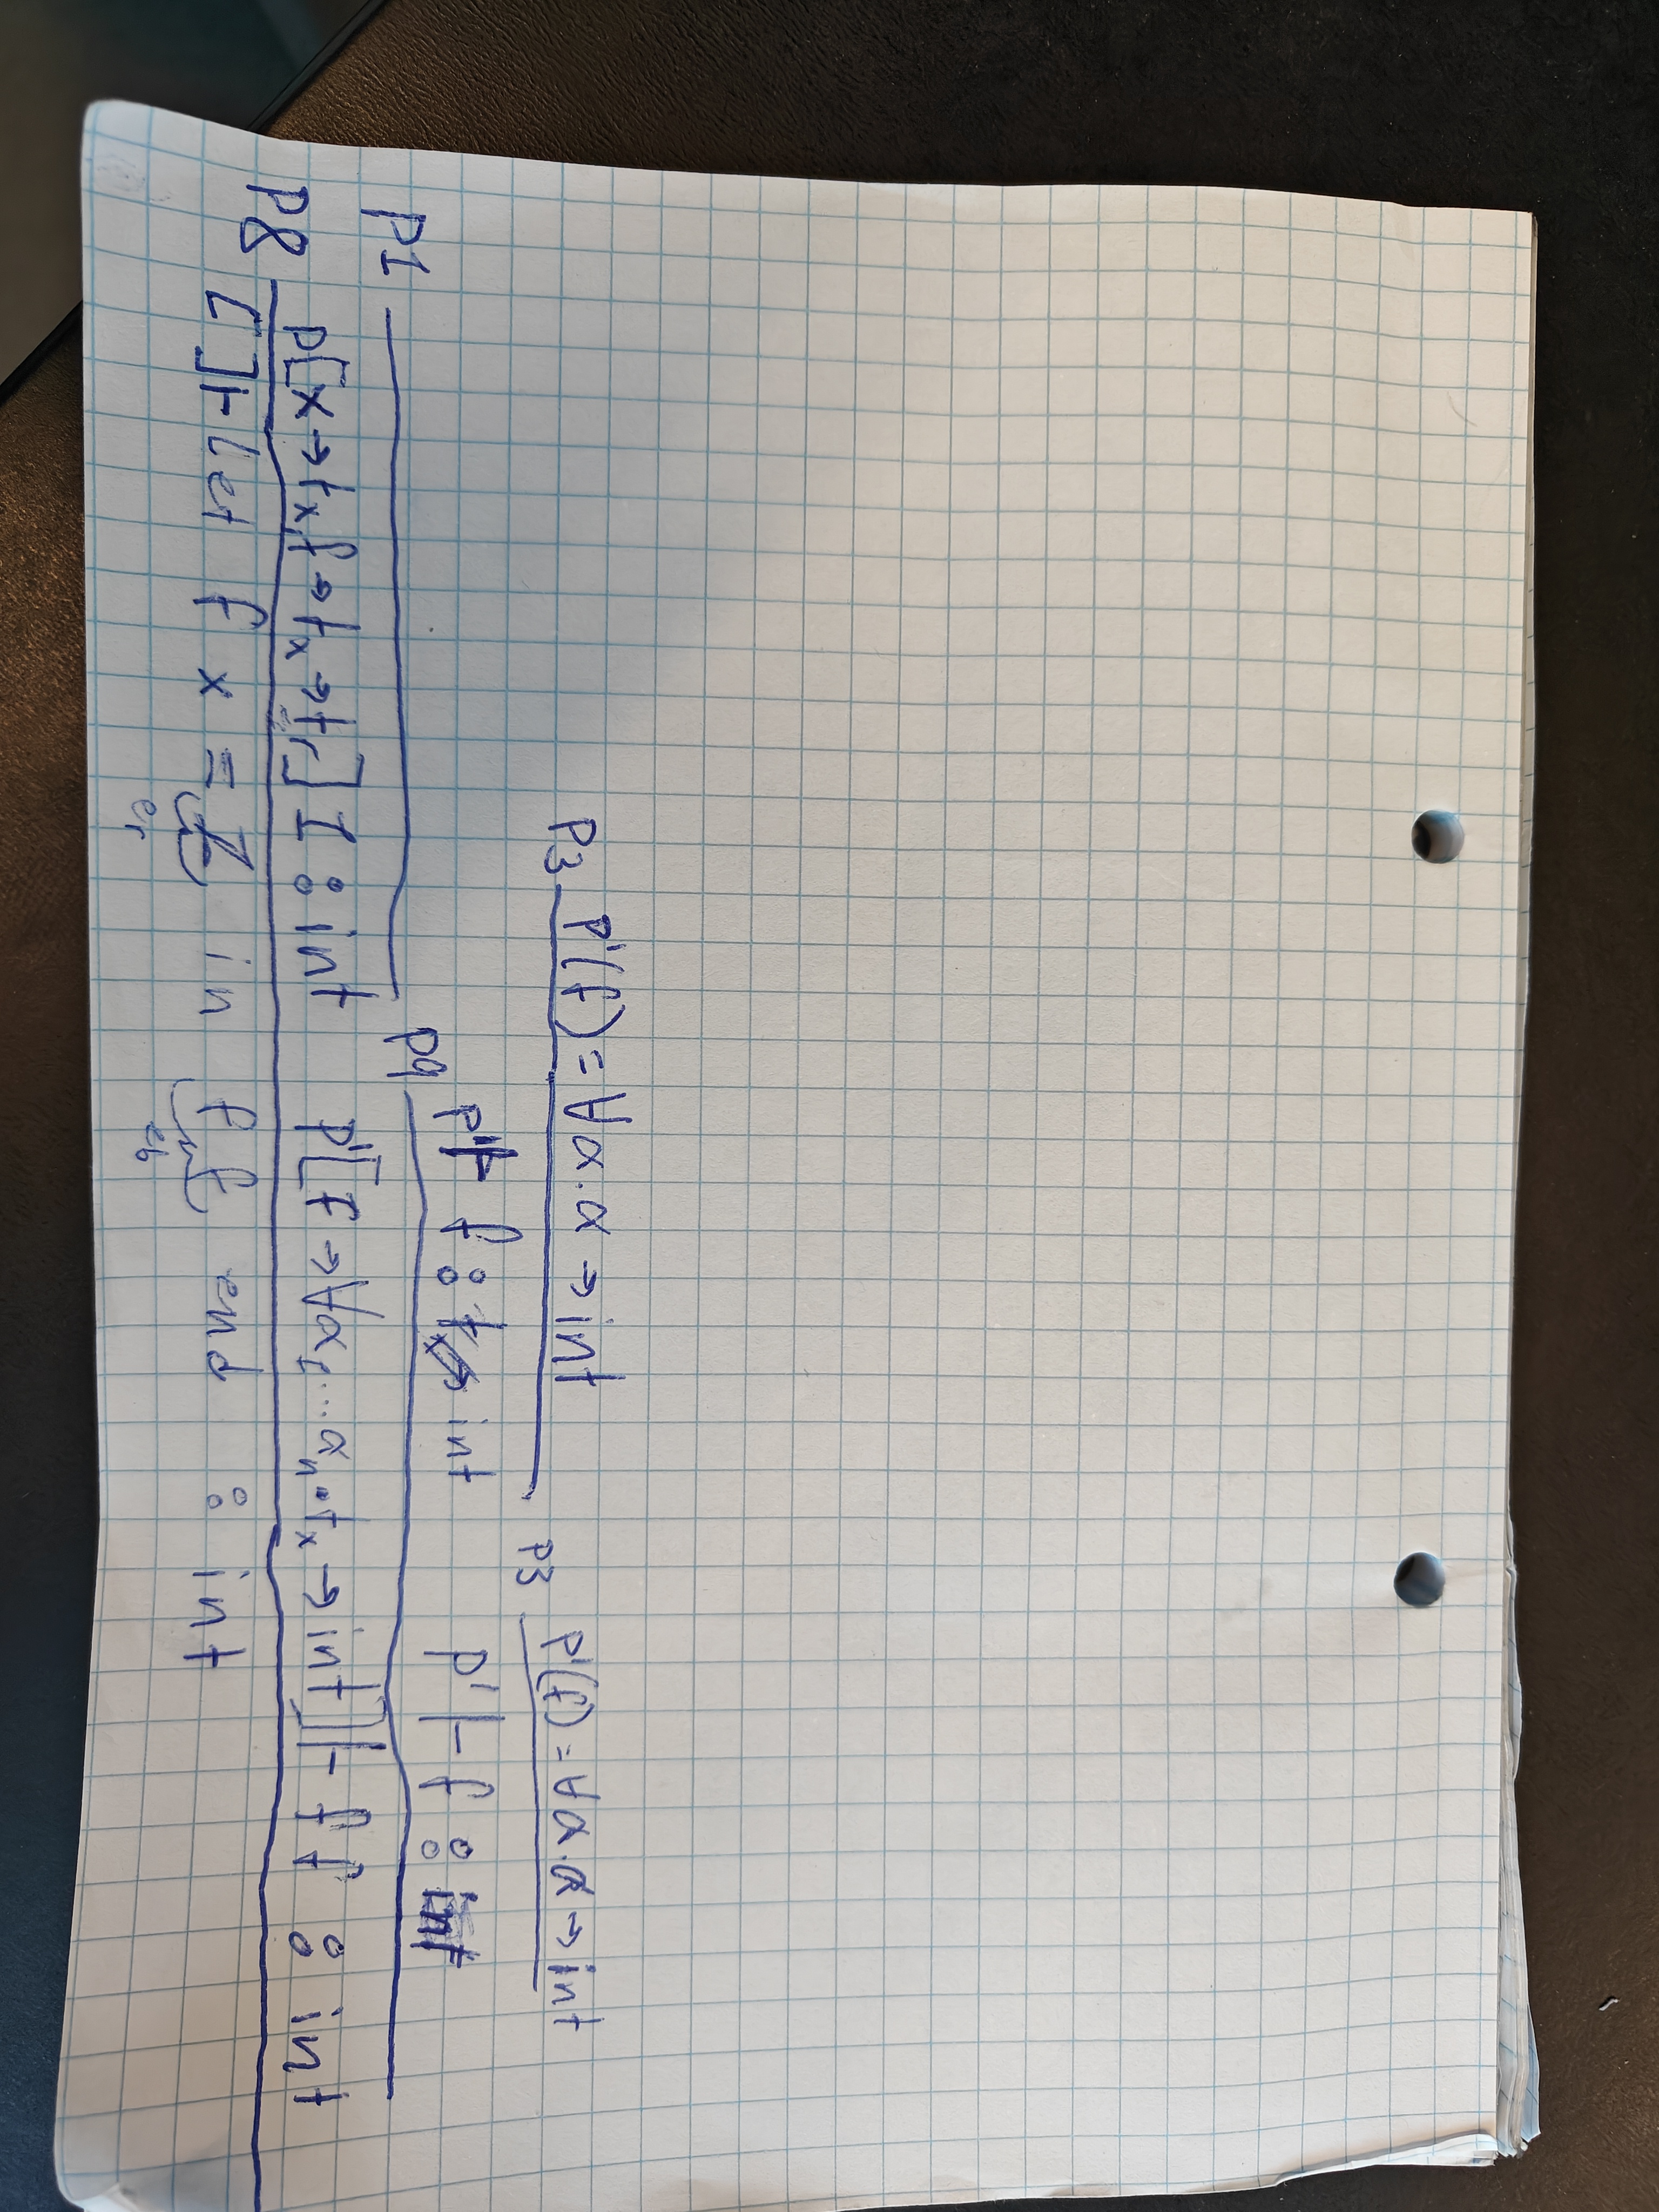 p3 p'(f) = ∀α.α → int
p3 p'(f) = ∀α.α → int
p' ⊢ f : t → int
p' ⊢ f : int
p1
p9
p[x→tx, f→tx→tr] 1 : int
p'[f → ∀α1...αn.tx → int] ⊢ f f : int
p8
[] ⊢ let f x = 1 in f f end : int
er
eb